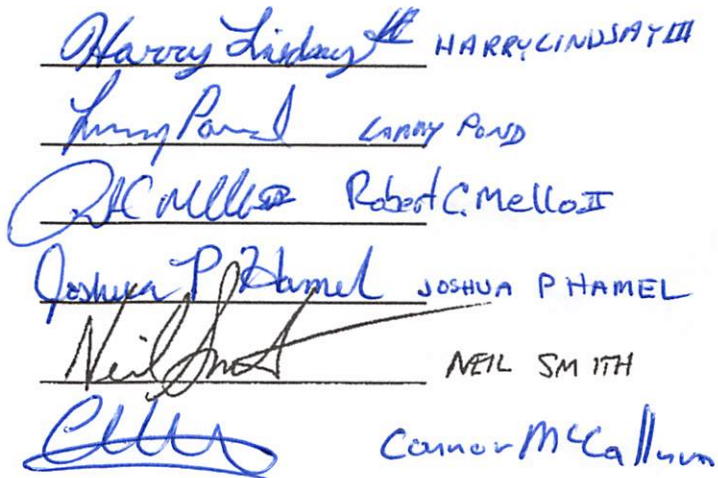 Harry Lindsay III HARRY LINDSAY III
Larry Pond LARRY POND
RHC Mello II Robert C. Mello II
Joshua P Hamel JOSHUA P HAMEL
Neil Smith NEIL SMITH
Connor McCallum